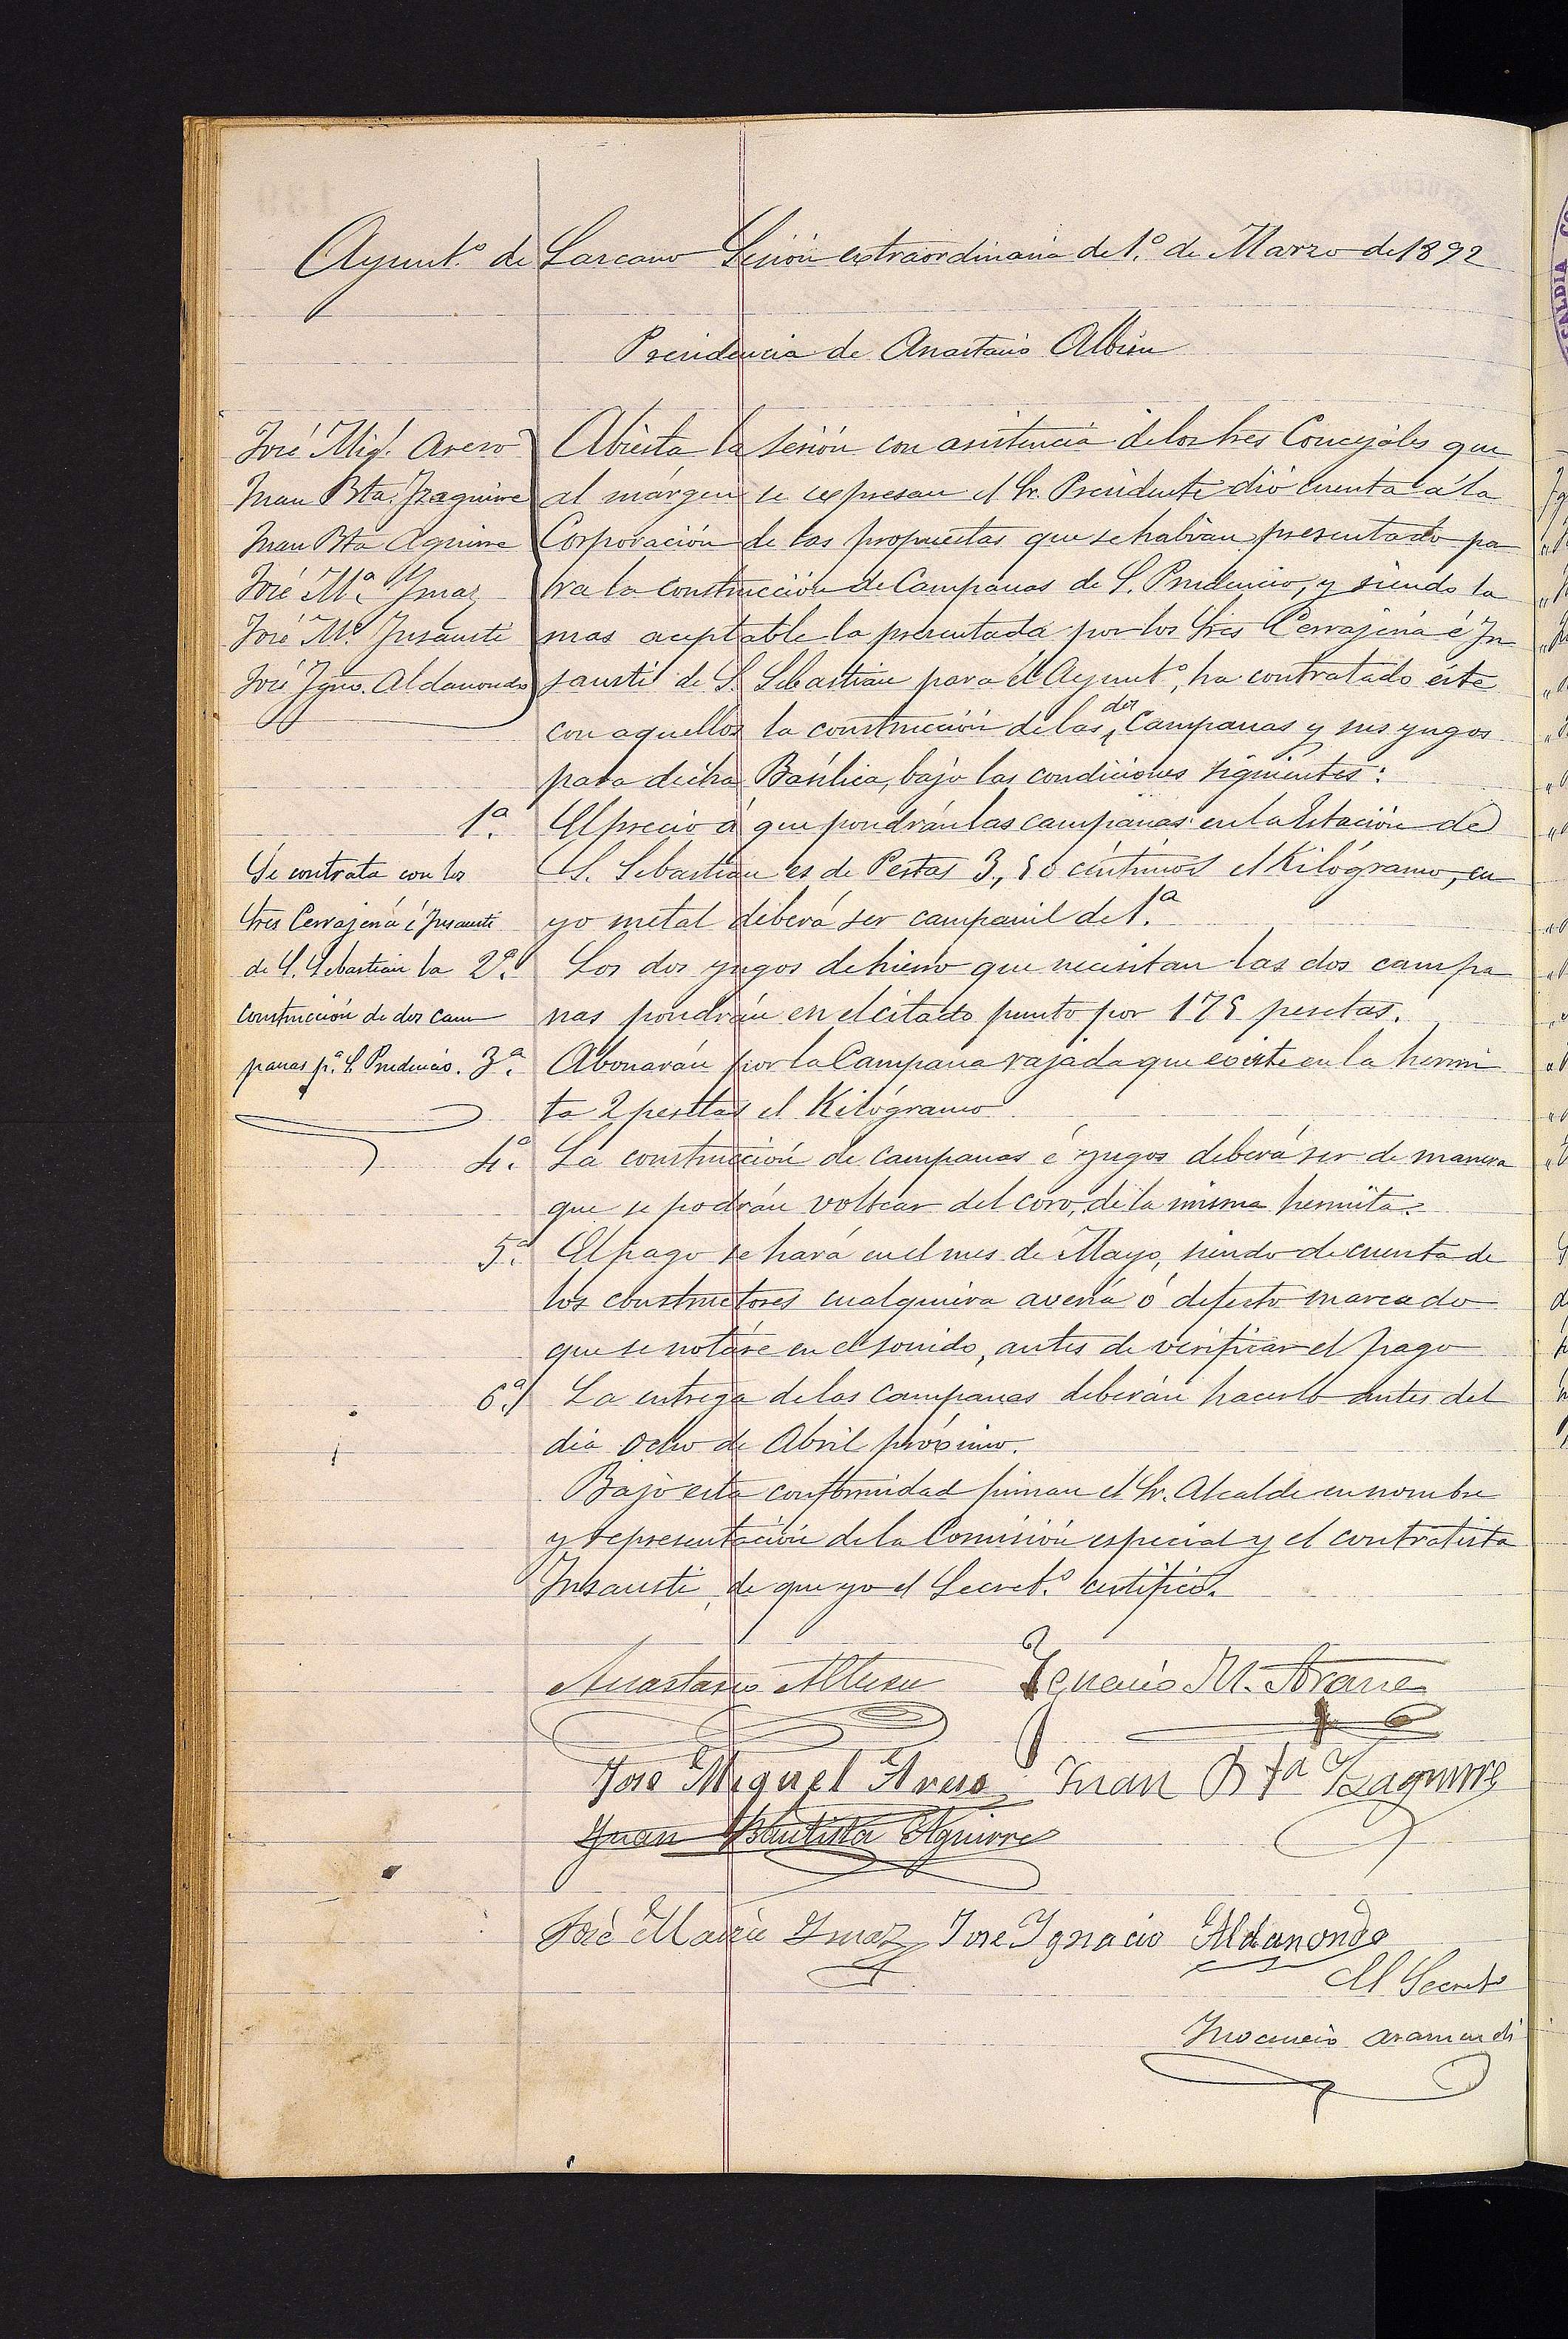 Ayunt.º de Lazcano Sesión extraordinaria de 1.º de Marzo de 1892
Presidencia de Anastasio Albisu
José Mig.l Areso
Juan Bta. Yzaguirre
Juan Bta Aguirre
José M.ª Ymaz
José M.ª Insausti
José Ygno. Aldanondo
Abierta la Sesión con asistencia de los Sres Concejales que
al márgen se expresan el Sr. Presidente dió cuenta á la
Corporación de las propuestas que se habian presentado pa
ra la construcción de Campanas de S. Prudencio, y siendo la
mas aceptable la presentada por los Sres Cerrajeria é In
sausti de S. Sebastian para el Ayunt.º, ha contratado éste
con aquellos la construcción de las dos Campanas y sus yugos
para dicha Basílica, bajo las condiciones siguientes:
1.ª El precio á que pondrán las campanas en la Estación de
S. Sebastian es de Pestas 3,50 céntimos el Kilógramo, cu
yo metal deberá ser campanil de 1.ª
Se contrata con los
Sres Cerrajería é Insausti
de S. Sebastian la
construcción de dos cam
panas p.ª S. Prudencio.
2.ª Los dos yugos de hierro que necesitan las dos campa
nas pondrán en el citado punto por 175 pesetas.
3.ª Abonarán por la Campana rajada que existe en la hermi
ta 2 pesetas el Kilógramo
4.ª La construcción de campanas é yugos deberá ser de manera
que se podrán voltear del coro, de la misma hermita.
5.ª El pago se hará en el mes de Mayo, siendo de cuenta de
los constructores cualquiera avería ó defecto marcado
que se notáre en el sonido, antes de verificar el pago
6.ª La entrega de las campanas deberán hacerlo antes del
dia ocho de Abril próximo.
Bajo esta conformidad firman el Sr. Alcalde en nombre
y representación de la Comisión especial y el contratista
Insausti, de que yo el Secret.º certifico.
Anastasio Albisu Ignacio M. Arane
José Miguel Areso Juan Bta Yzaguirre
Juan Bautista Aguirre
José Maria Ymaz José Ygnacio Aldanondo
El Secret.º
Inocencio Aramendi